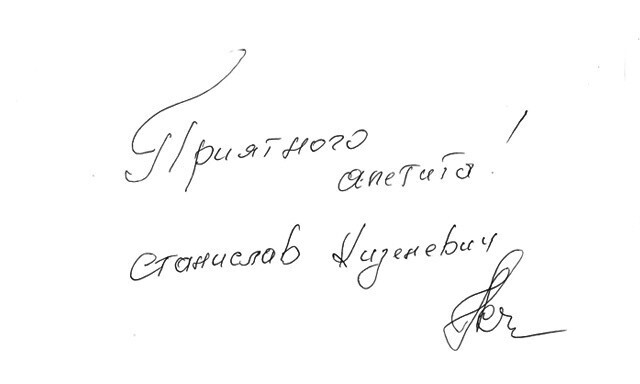 Приятного
апетита!
Станислав Кизеневич